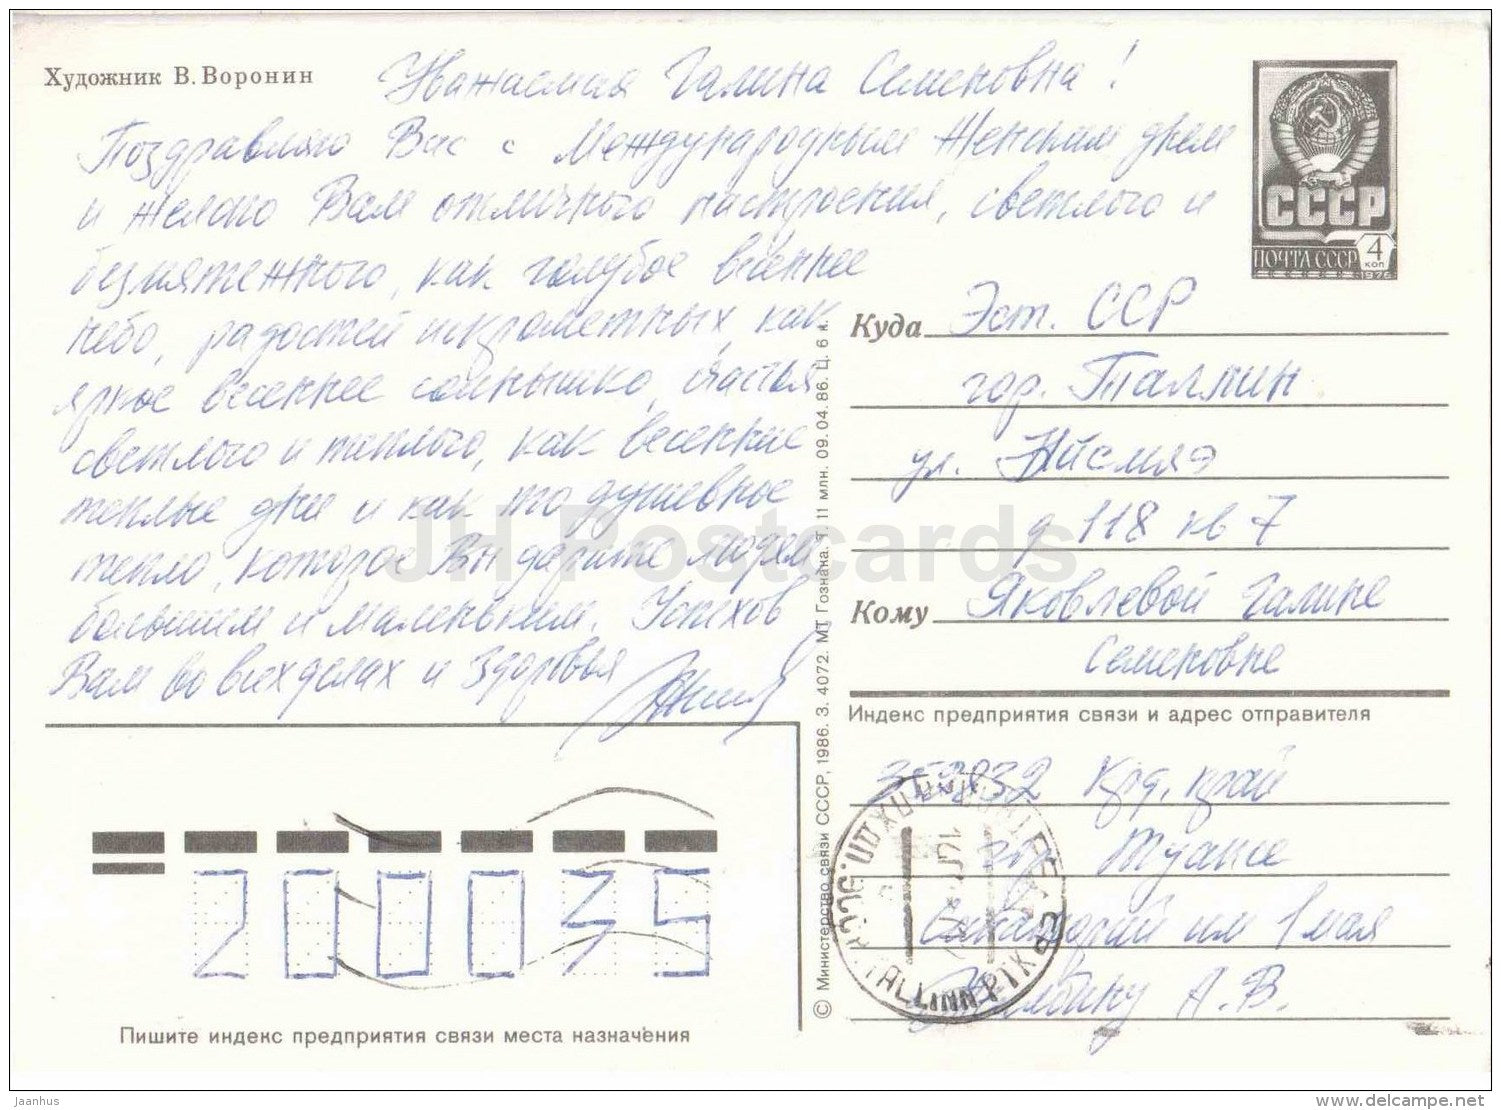 Художник В. Воронин
Уважаемая Галина Семеновна!
Поздравляю Вас с Международным Женским днем
и желаю Вам отличного настроения, светлого и
безмятежного, как голубое весеннее
небо, радостей искрометных, как
яркое весеннее солнышко, счастья
светлого и теплого, как весенние
теплые дни и как то душевное
тепло, которое Вы дарите людям
большим и маленьким. Успехов
Вам во всех делах и здоровья
СССР
ПОЧТА СССР
4
коп
1976
Куда Эст. ССР
гор. Таллин
ул. Ыйсмяэ
д 118 кв 7
Кому Яковлевой Галине
Семеновне
Индекс предприятия связи и адрес отправителя
352832 Крд. край
Туапсе
Санаторий им 1 мая
А. В.
TALLINN PIKK
200035
Пишите индекс предприятия связи места назначения
© Министерство связи СССР, 1986. З. 4072. МТ Гознака. Т. 11 млн. 09. 04. 86. Ц. 6 к.
JH Postcards
Jaanhus
www.delcampe.net